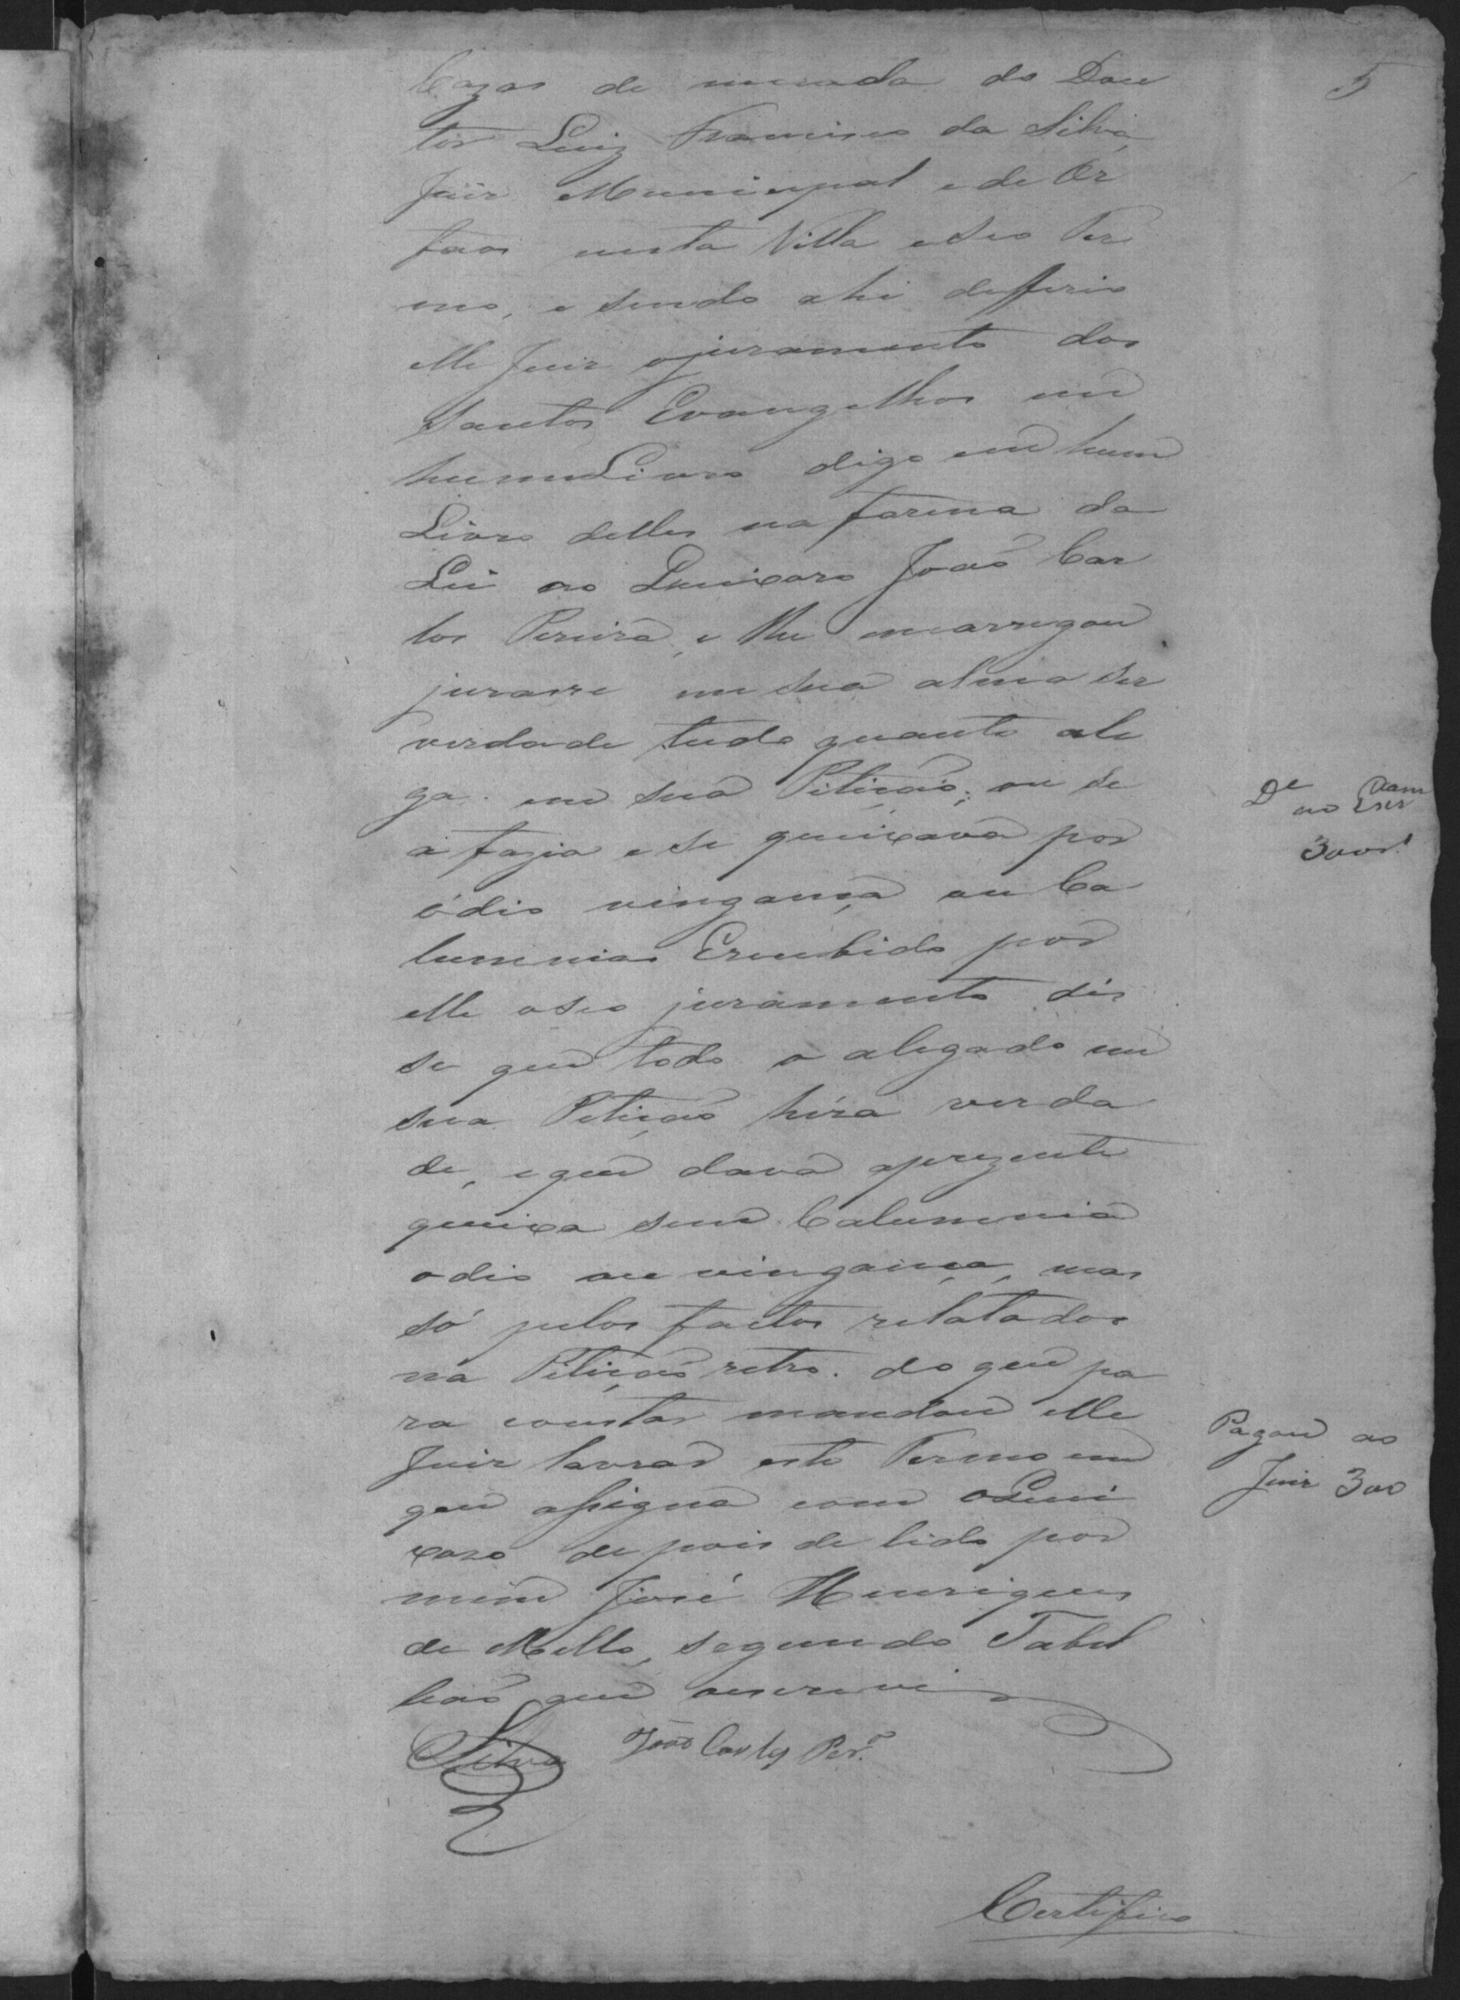 5
Cazas de morada do Dou
tor Luiz Francisco da Silva,
Juiz Municipal e de Or
faos nesta Villa e seo Ter
mo, e sendo ahi defferio
elle Juiz o juramento dos
Santos Evangelhos em
hum Livro digo em hum
Livro delles na forma da
Lei ao Queixoso João Car
los Pereira, e lhe encarregou
jurasse em sua alma ser
verdade tudo quanto ale
ga em sua Petição; ou se
a fazia e se queixava por
ódio vingança ou Ca
lumnia. E recebido por
elle o seo juramento dis
se que todo o alegado em
sua Petição héra verda
de, e que dava aprezente
queixa sem Calumnia
odio ou vingança, mas
só pelos factos relatados
na Petição retro. do que pa
ra constar mandou elle
Juiz lavrar este Termo em
que assigna com o Quei
xoso depois de lido por
mim José Henriques
de Mello, segundo Tabel
lião que oescrevi
Silva João Carlos Per.ª
De
ao Escr
300 rs
Pagou ao
Juiz 300
Certifico